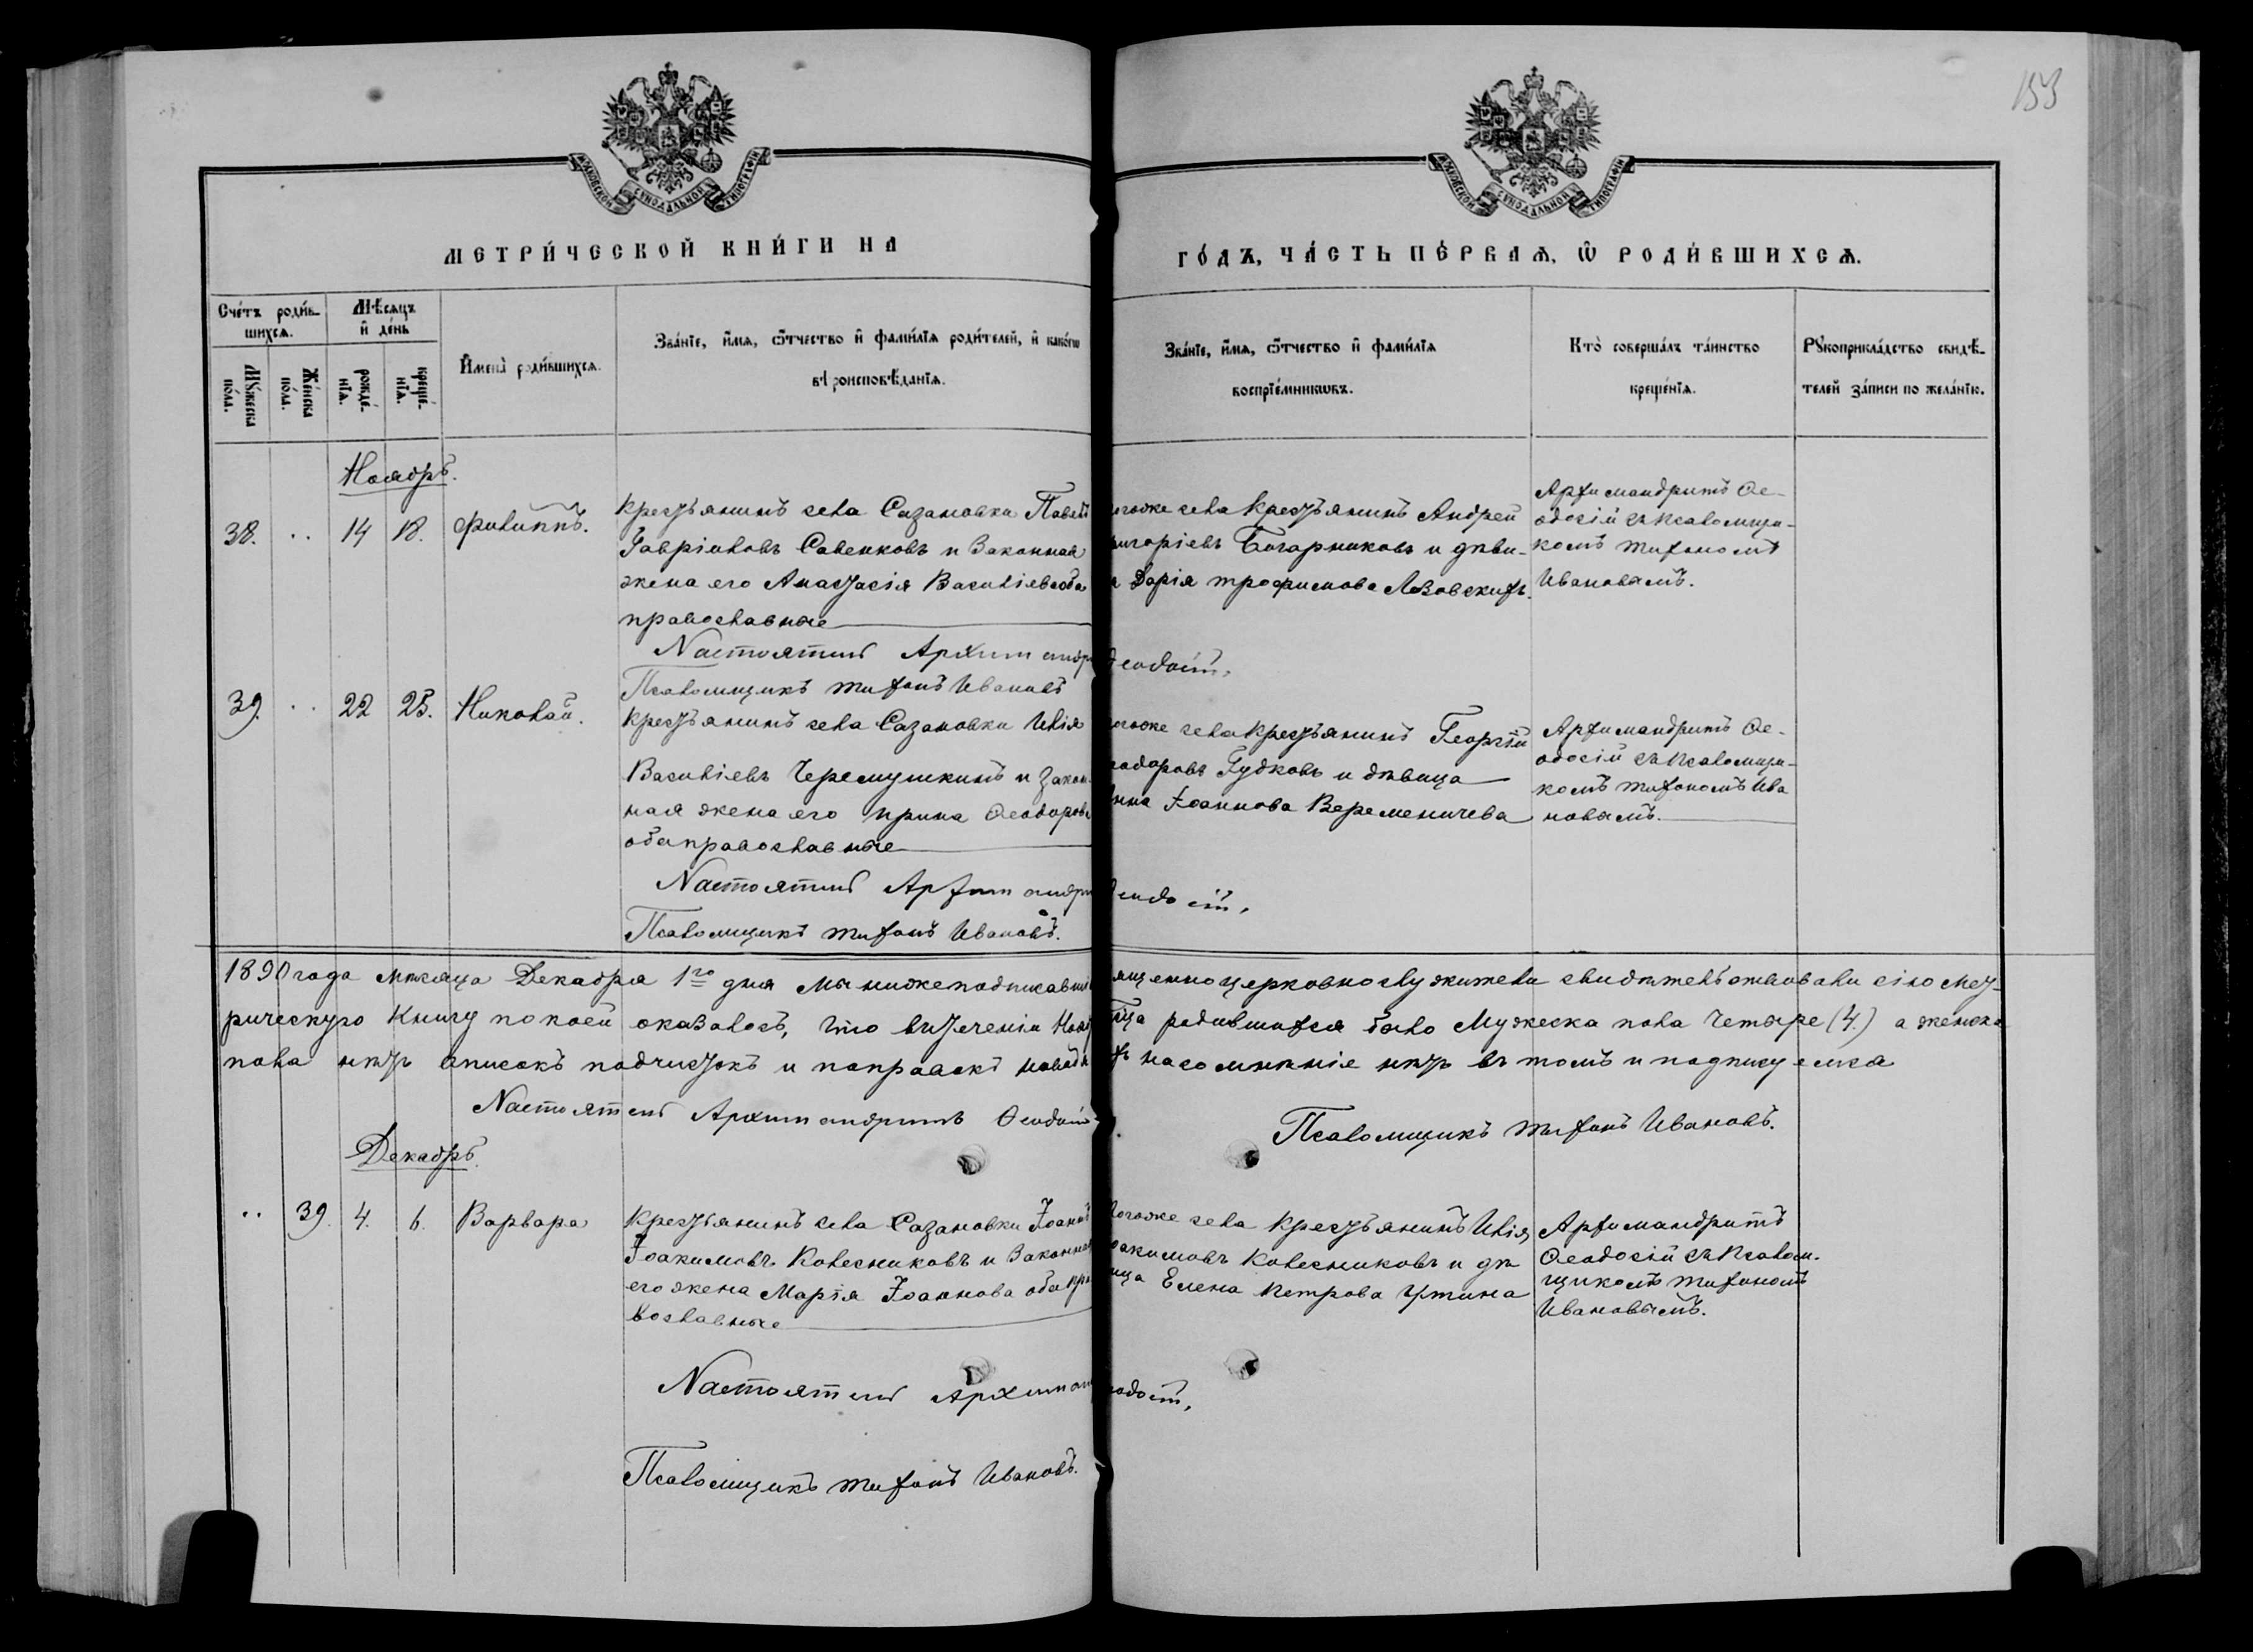 153
МОСКОВСКОЙ СѴНОДАЛЬНОЙ ТИПОГРАФІИ
МОСКОВСКОЙ СѴНОДАЛЬНОЙ ТИПОГРАФІИ
МЕТРИ́ЧЕСКОЙ КНИ́ГИ НА
ГО́ДЪ, ЧА́СТЬ ПЕ́РВАѦ, Ѡ҆ РОДИ́ВШИХСѦ.
Сче́тъ роди́в-
шихсѧ.
Мѣ́сѧцъ
и҆ де́нь
Мꙋ́жеска по́ла.
Же́нска по́ла.
рожде́-нїѧ.
креще́-нїѧ.
И҆мена̀ роди́вшихсѧ.
Зва́нїе, и҆́мѧ, ѻ҆́тчество и҆ фами́лїѧ роди́телей, и҆ како́гѡ
вѣроисповѣ́данїѧ.
Зва́нїе, и҆́мѧ, ѻ҆́тчество и҆ фами́лїѧ
воспрїе́мникѡвъ.
Кто̀ соверша́лъ та́инство
креще́нїѧ.
Рꙋкоприкла́дство свидѣ́-
телей за́писи по жела́нїю.
Ноябрь.
38. .. 14 18. Филиппъ.
Крестьянинъ села Сазановки Павелъ
Гавріиловъ Савенковъ и Законная
жена его Анастасія Василіева оба
православные
тогоже села Крестьянинъ Андрей
Григоріевъ Богарниковъ и дѣви-
Дарія Трофимова Лозовскихъ.
Архимандритъ Ѳе-
одосій съ Псаломщи-
комъ Тихономъ
Ивановымъ.
Настоятель Архимандр Ѳеодосій.
Псаломщикъ Тихонъ Ивановъ
39. .. 22 25. Николай.
Крестьянинъ села Сазановки Илія
Василіевъ Черемушкинъ и закон-
ная жена его Ирина Ѳеодорова
оба православные
тогоже села Крестьянинъ Георгій
Ѳеодоровъ Гудковъ и дѣвица
Анна Іоаннова Веременичева
Архимандритъ Ѳе-
одосій съ Псаломщи-
комъ Тихономъ Ива
новымъ.
Настоятель Архимандр Ѳеодосій.
Псаломщикъ Тихонъ Ивановъ.
1890 года мѣсяца Декабря 1го дня мы нижеподписавші ященноцерковнослужители свидѣтельствовали сію мет-
рическую книгу по коей оказалось, что въ теченіи Нояб родившихся было Мужеска пола четыре (4.) а женска
пола нѣтъ описокъ подчистокъ и поправокъ на сомнѣніе нѣтъ въ томъ и подписуемся
Настоятель Архимандритъ Ѳеодосій.
Псаломщикъ Тихонъ Ивановъ.
Декабрь.
.. 39. 4. 6. Варвара
Крестьянинъ села Сазановки Іоаннъ
Іоакимовъ Колесниковъ и Законная
его жена Марія Іоаннова оба пра
вославные
Тогоже села Крестьянинъ Илія
Іоакимовъ Колесниковъ и дѣ
вица Елена Петрова Утина
Архимандритъ
Ѳеодосій съ Псалом-
щикомъ Тихономъ
Ивановымъ.
Настоятель Архиман Ѳеодосій.
Псаломщикъ Тихонъ Ивановъ.